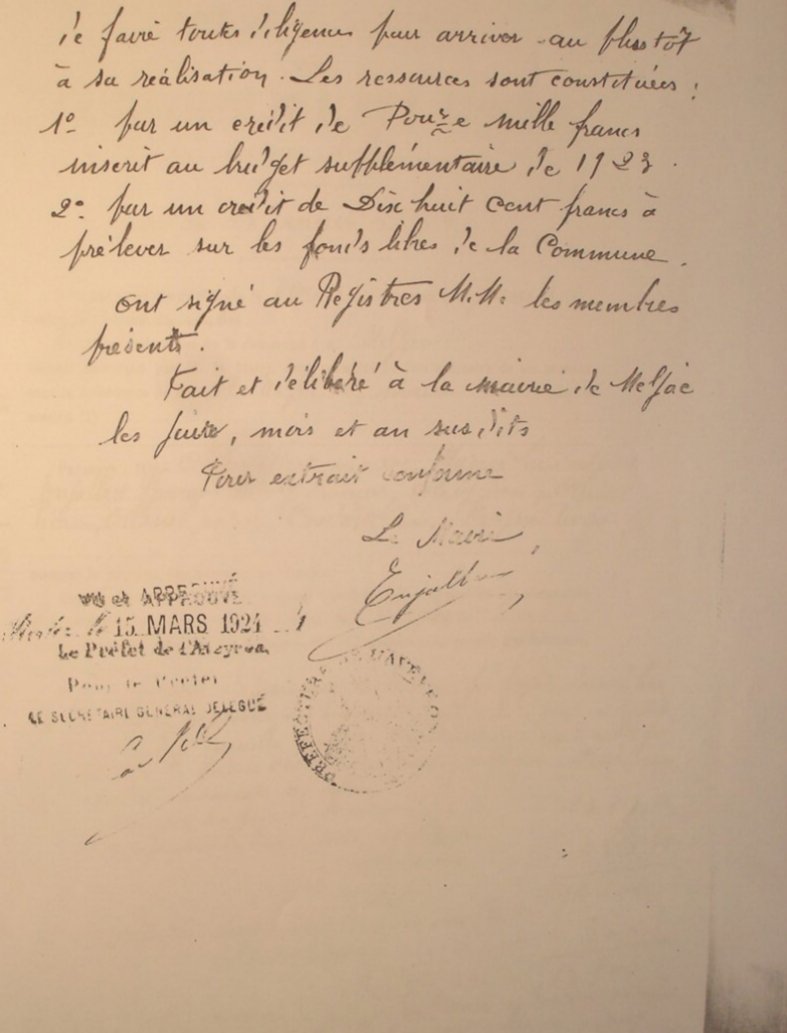 de faire toutes diligences pour arriver au plustôt
à sa réalisation. Les ressources sont constituées :
1º par un crédit de Douze mille francs
inscrit au budget supplémentaire de 1923.
2º par un crédit de Dix huit cent francs à
prélever sur les fonds libres de la Commune.
ont signé au Registres M.M. les membres
présents.
Fait et délibéré à la mairie de Meljac
les jour, mois et an susdits
Pour extrait conforme
Le Maire,
Enjalbert
Vu et APPROUVÉ
le 15 MARS 1924
Le Préfet de l'Aveyron,
Pour le Préfet
LE SECRÉTAIRE GÉNÉRAL DÉLÉGUÉ
PREFECTURE DE L'AVEYRON